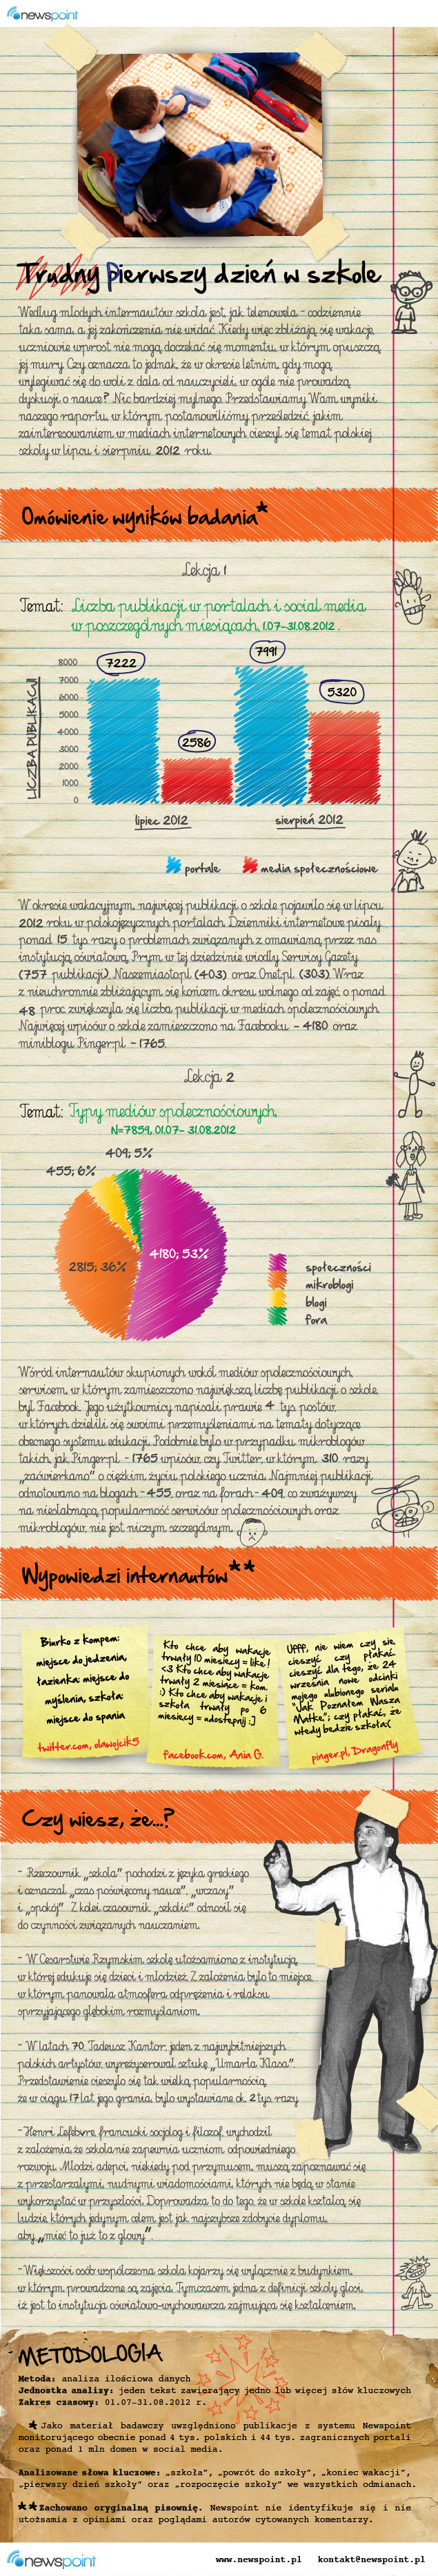 newspoint
Trudny pierwszy dzień w szkole
Według młodych internautów szkoła jest jak telenowela - codziennie
taka sama, a jej zakończenia nie widać. Kiedy więc zbliżają się wakacje,
uczniowie wprost nie mogą doczekać się momentu, w którym opuszczą
jej mury. Czy oznacza to jednak, że w okresie letnim, gdy mogą
wylegiwać się do woli z dala od nauczycieli, w ogóle nie prowadzą
dyskusji o nauce? Nic bardziej mylnego. Przedstawiamy Wam wyniki
naszego raportu, w którym postanowiliśmy prześledzić jakim
zainteresowaniem w mediach internetowych cieszył się temat polskiej
szkoły w lipcu i sierpniu 2012 roku.
Omówienie wyników badania*
Lekcja 1
Temat: Liczba publikacji w portalach i social media
w poszczególnych miesiącach, 1.07-31.08.2012.
LICZBA PUBLIKACJI
8000
7000
6000
5000
4000
3000
2000
1000
0
7222
2586
7991
5320
lipiec 2012
sierpień 2012
portale
media społecznościowe
W okresie wakacyjnym, najwięcej publikacji o szkole pojawiło się w lipcu
2012 roku w polskojęzycznych portalach. Dzienniki internetowe pisały
ponad 15 tys. razy o problemach związanych z omawianą przez nas
instytucją oświatową. Prym w tej dziedzinie wiodły Serwisy Gazety
(757 publikacji), Naszemiasto.pl (403) oraz Onet.pl (303). Wraz
z nieuchronnie zbliżającym się końcem okresu wolnego od zajęć o ponad
48 proc. zwiększyła się liczba publikacji w mediach społecznościowych.
Najwięcej wpisów o szkole zamieszczono na Facebooku - 4180 oraz
miniblogu Pinger.pl - 1765.
Lekcja 2
Temat: Typy mediów społecznościowych,
N=7859, 01.07- 31.08.2012
409; 5%
455; 6%
2815; 36%
4180; 53%
społeczności
mikroblogi
blogi
fora
Wśród internautów skupionych wokół mediów społecznościowych,
serwisem, w którym zamieszczono największą liczbę publikacji o szkole,
był Facebook. Jego użytkownicy napisali prawie 4 tys. postów,
w których dzielili się swoimi przemyśleniami na tematy dotyczące
obecnego systemu edukacji. Podobnie było w przypadku mikroblogów
takich, jak Pinger.pl - 1765 wpisów, czy Twitter, w którym 310 razy
„zaćwierkano” o ciężkim życiu polskiego ucznia. Najmniej publikacji
odnotowano na blogach - 455, oraz na forach - 409, co zważywszy
na niesłabnącą popularność serwisów społecznościowych oraz
mikroblogów, nie jest niczym szczególnym.
Wypowiedzi internautów**
Biurko z kompem:
miejsce do jedzenia,
łazienka: miejsce do
myślenia, szkoła:
miejsce do spania
twitter.com, olawojcik5
Kto chce aby wakacje
trwały 10 miesięcy = like !
<3 Kto chce aby wakacje
trwały 2 miesiące = kom.
:) Kto chce aby wakacje i
szkoła trwały po 6
miesięcy = udostępnij :]
facebook.com, Ania G.
Ufff, nie wiem czy się
cieszyć czy płakać,
cieszyć dla tego, że 24
września nowe odcinki
mojego ulubionego seriala
"Jak Poznałem Wasza
Matke"; czy płakać, że
wtedy bedzie szkoła:(
pinger.pl, Dragonfly
Czy wiesz, że...?
- Rzeczownik „szkoła” pochodzi z języka greckiego
i oznaczał „czas poświęcony nauce”, „wczasy”
i „spokój”. Z kolei czasownik „szkolić” odnosił się
do czynności związanych nauczaniem.
- W Cesarstwie Rzymskim szkołę utożsamiono z instytucją,
w której edukuje się dzieci i młodzież. Z założenia było to miejsce,
w którym panowała atmosfera odprężenia i relaksu
sprzyjającego głębokim rozmyślaniom.
- W latach 70. Tadeusz Kantor, jeden z najwybitniejszych
polskich artystów, wyreżyserował sztukę „Umarła Klasa”.
Przedstawienie cieszyło się tak wielką popularnością,
że w ciągu 17 lat jego grania, było wystawiane ok. 2 tys. razy.
- Henri Lefebvre, francuski socjolog i filozof, wychodził
z założenia, że szkoła nie zapewnia uczniom odpowiedniego
rozwoju. Młodzi adepci, niekiedy pod przymusem, muszą zapoznawać się
z przestarzałymi, nudnymi wiadomościami, których nie będą w stanie
wykorzystać w przyszłości. Doprowadza to do tego, że w szkole kształcą się
ludzie, których jedynym celem jest jak najszybsze zdobycie dyplomu,
aby „mieć to już to z głowy”
- Większości osób współczesna szkoła kojarzy się wyłącznie z budynkiem,
w którym prowadzone są zajęcia. Tymczasem, jedna z definicji szkoły głosi,
iż jest to instytucja oświatowo-wychowawcza zajmująca się kształceniem.
METODOLOGIA
Metoda: analiza ilościowa danych
Jednostka analizy: jeden tekst zawierający jedno lub więcej słów kluczowych
Zakres czasowy: 01.07-31.08.2012 r.
* Jako materiał badawczy uwzględniono publikacje z systemu Newspoint
monitorującego obecnie ponad 4 tys. polskich i 44 tys. zagranicznych portali
oraz ponad 1 mln domen w social media.
Analizowane słowa kluczowe: „szkoła”, „powrót do szkoły”, „koniec wakacji”,
„pierwszy dzień szkoły” oraz „rozpoczęcie szkoły” we wszystkich odmianach.
** Zachowano oryginalną pisownię. Newspoint nie identyfikuje się i nie
utożsamia z opiniami oraz poglądami autorów cytowanych komentarzy.
newspoint
www.newspoint.pl kontakt@newspoint.pl